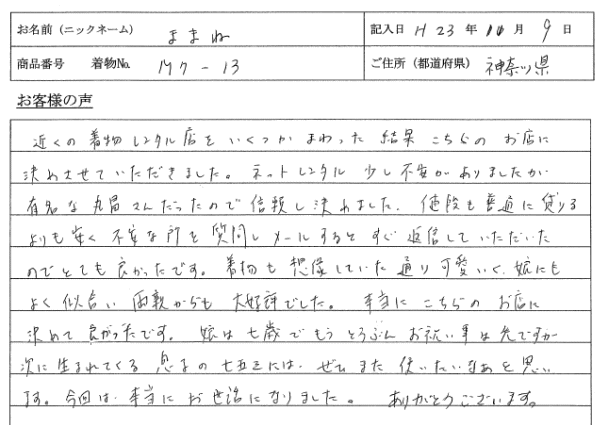 お名前（ニックネーム） ままね 記入日 H 23 年 10 月 9 日
商品番号 着物No. M7-13 ご住所（都道府県） 神奈川県
お客様の声
近くの着物レンタル店をいくつかまわった結果こちらのお店に
決めさせていただきました。ネットレンタル少し不安がありましたが
有名な丸昌さんだったので信頼し決めました。値段も普通に貸りる
よりも安く不安な所を質問しメールするとすぐ返信していただいた
のでとても良かったです。着物も想像していた通り可愛いく、娘にも
よく似合い両親からも大好評でした。本当にこちらのお店に
決めて良かったです。娘は七歳でもうとうぶんお祝い事は先ですが
次に生まれてくる息子の七五三には、ぜひまた使いたいなあと思い
ます。今回は、本当にお世話になりました。ありがとうございます。